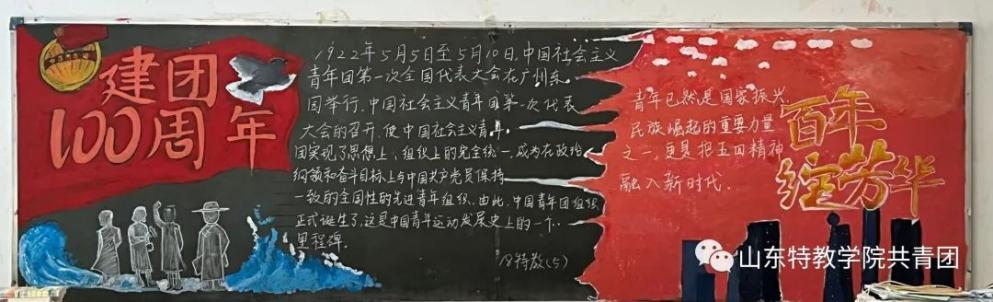 建团
100周年
1922年5月5日至5月10日,中国社会主义
青年团第一次全国代表大会在广州东
园举行,中国社会主义青年团第一次代表
大会的召开,使中国社会主义青年
团实现了思想上、组织上的完全统一,成为在政治
纲领和奋斗目标上与中国共产党员保持
一致的全国性的先进青年组织,由此,中国青年团组织
正式诞生了,这是中国青年运动发展史上的一个
里程碑.
18特教(5)
青年已然是国家振兴,
民族崛起的重要力量
之一,更是把五四精神
融入新时代.
百年
绽芳华
山东特教学院共青团